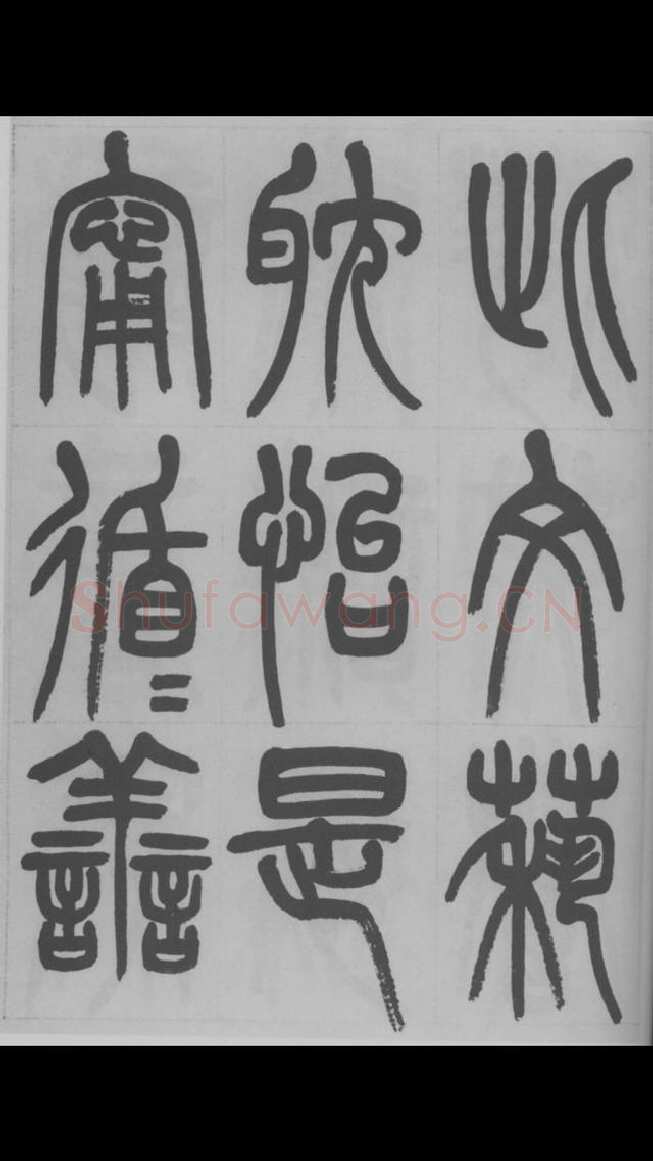 此文藝
耽怡是
甯循〻善
Shufawang.CN